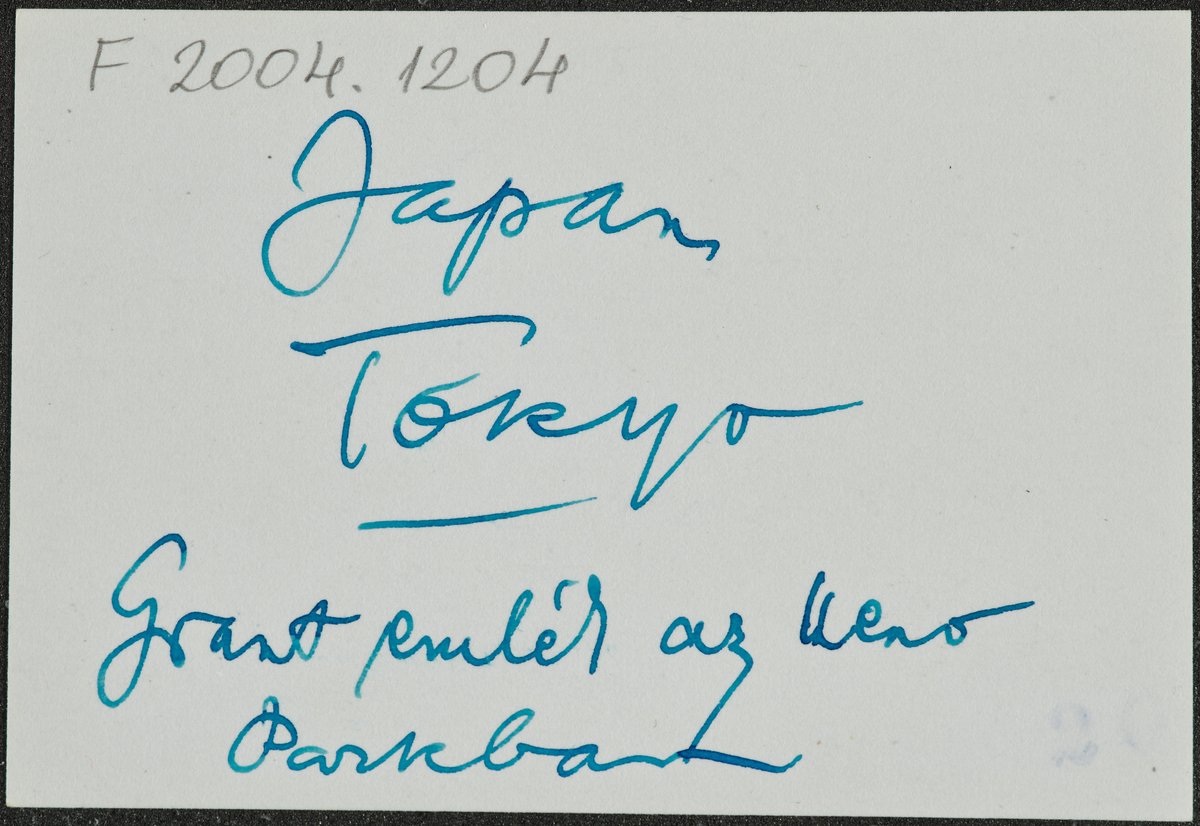 F 2004. 1204
Japan,
Tokyo
Grant emlék az Ueno
Parkban